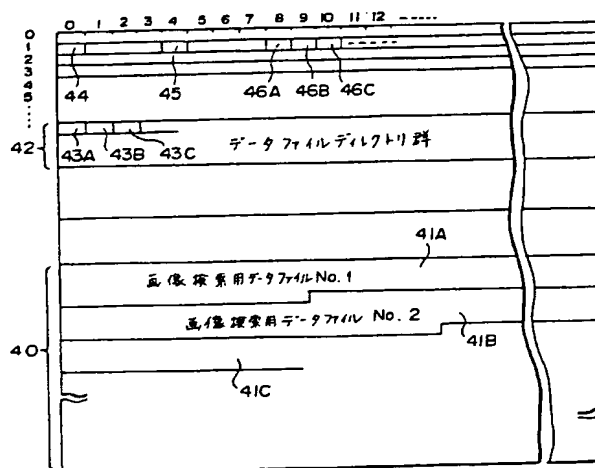 0 1 2 3 4 5 6 7 8 9 10 11 12
0
1
2
3
4
5
44 45 46A 46B 46C
42 43A 43B 43C データファイルディレクトリ群
41A
画像検索用データファイル No. 1
画像検索用データファイル No. 2
40 41B
41C